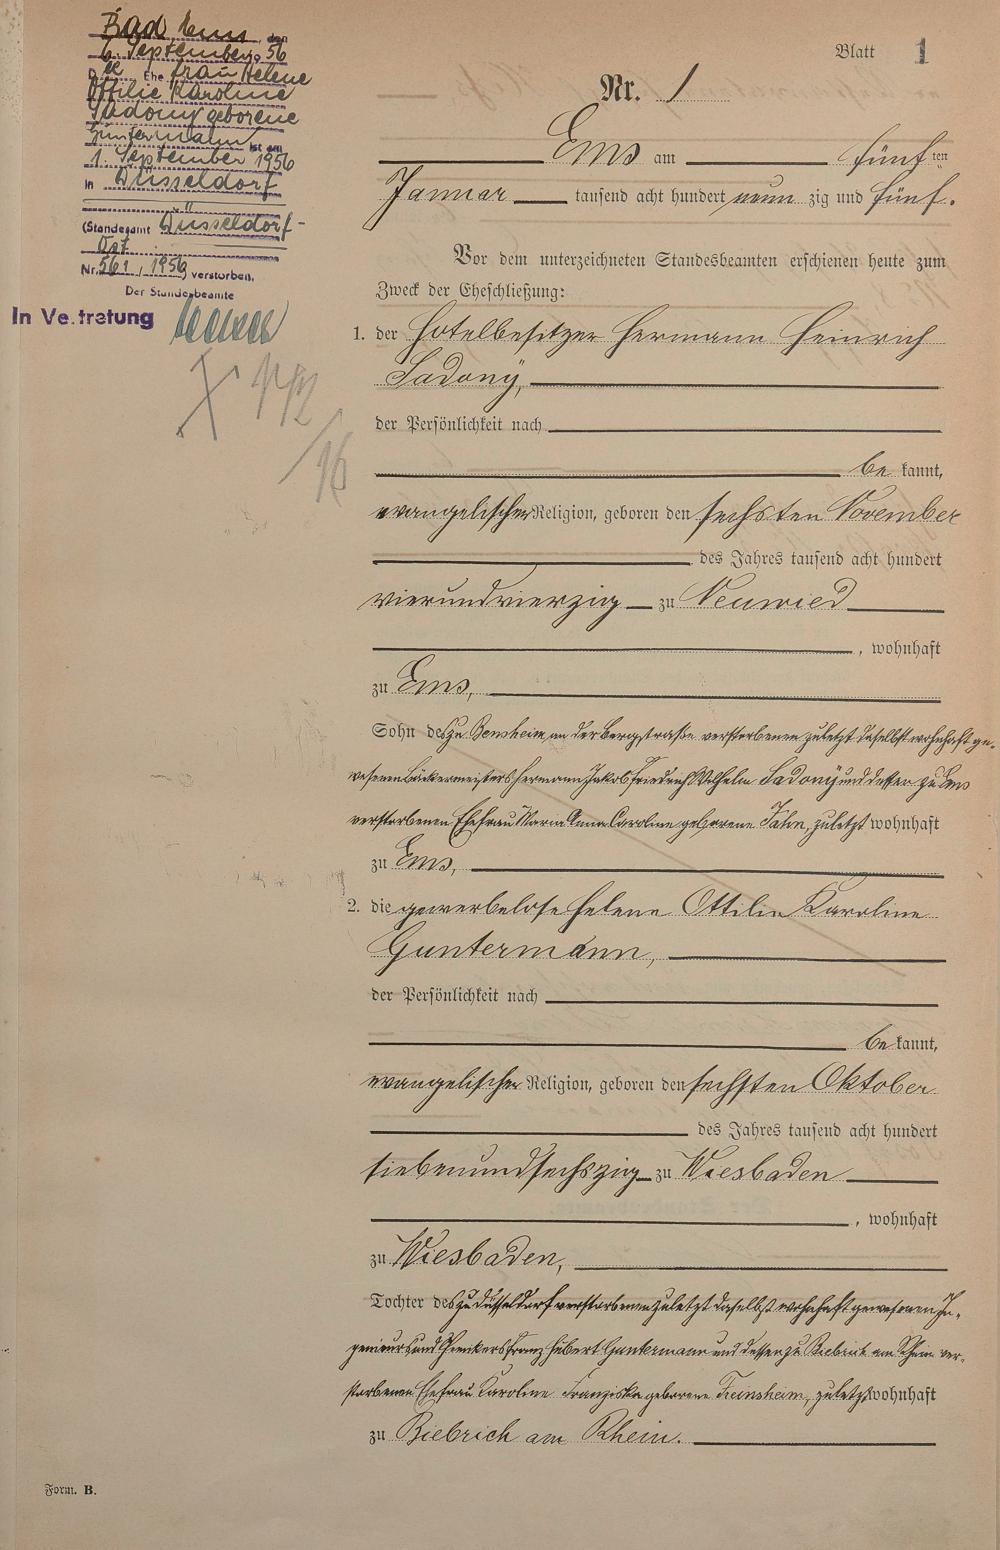 Bad Ems, den
6. September 1956
Die Ehefrau Helene
Ottilie Karoline
Sadony geborene
Guntermann ist am
1. September 1956
in Düsseldorf
(Standesamt Düsseldorf-
Ost
Nr. 561 / 1956 verstorben.
Der Standesbeamte
In Vertretung
Blatt 1
Nr. 1
Ems am fünften
Januar tausend acht hundert neunzig und fünf.
Vor dem unterzeichneten Standesbeamten erschienen heute zum
Zweck der Eheschließung:
1. der Hotelbesitzer Hermann Heinrich
Sadony,
der Persönlichkeit nach
bekannt,
evangelischer Religion, geboren den sechsten November
des Jahres tausend acht hundert
vierundvierzig zu Neuwied
, wohnhaft
zu Ems,
Sohn des zu Bensheim an der Bergstraße verstorbenen zuletzt daselbst wohnhaft ge-
wesenen Bäckermeisters Hermann Jakob Friedrich Wilhelm Sadony und dessen zu Ems
verstorbenen Ehefrau Maria Anna Caroline geborene Jahn, zuletzt wohnhaft
zu Ems,
2. die gewerbelose Helene Ottilie Karoline
Guntermann,
der Persönlichkeit nach
bekannt,
evangelischer Religion, geboren den sechsten Oktober
des Jahres tausend acht hundert
siebenundsechszig zu Wiesbaden
, wohnhaft
zu Wiesbaden,
Tochter des zu Düsseldorf verstorbenen zuletzt daselbst wohnhaft gewesenen In-
genieurs und Franz Hubert Guntermann und dessen zu Biebrich am Rhein ver-
storbenen Ehefrau Karoline Franziska geborene zuletzt wohnhaft
zu Biebrich am Rhein.
Form. B.